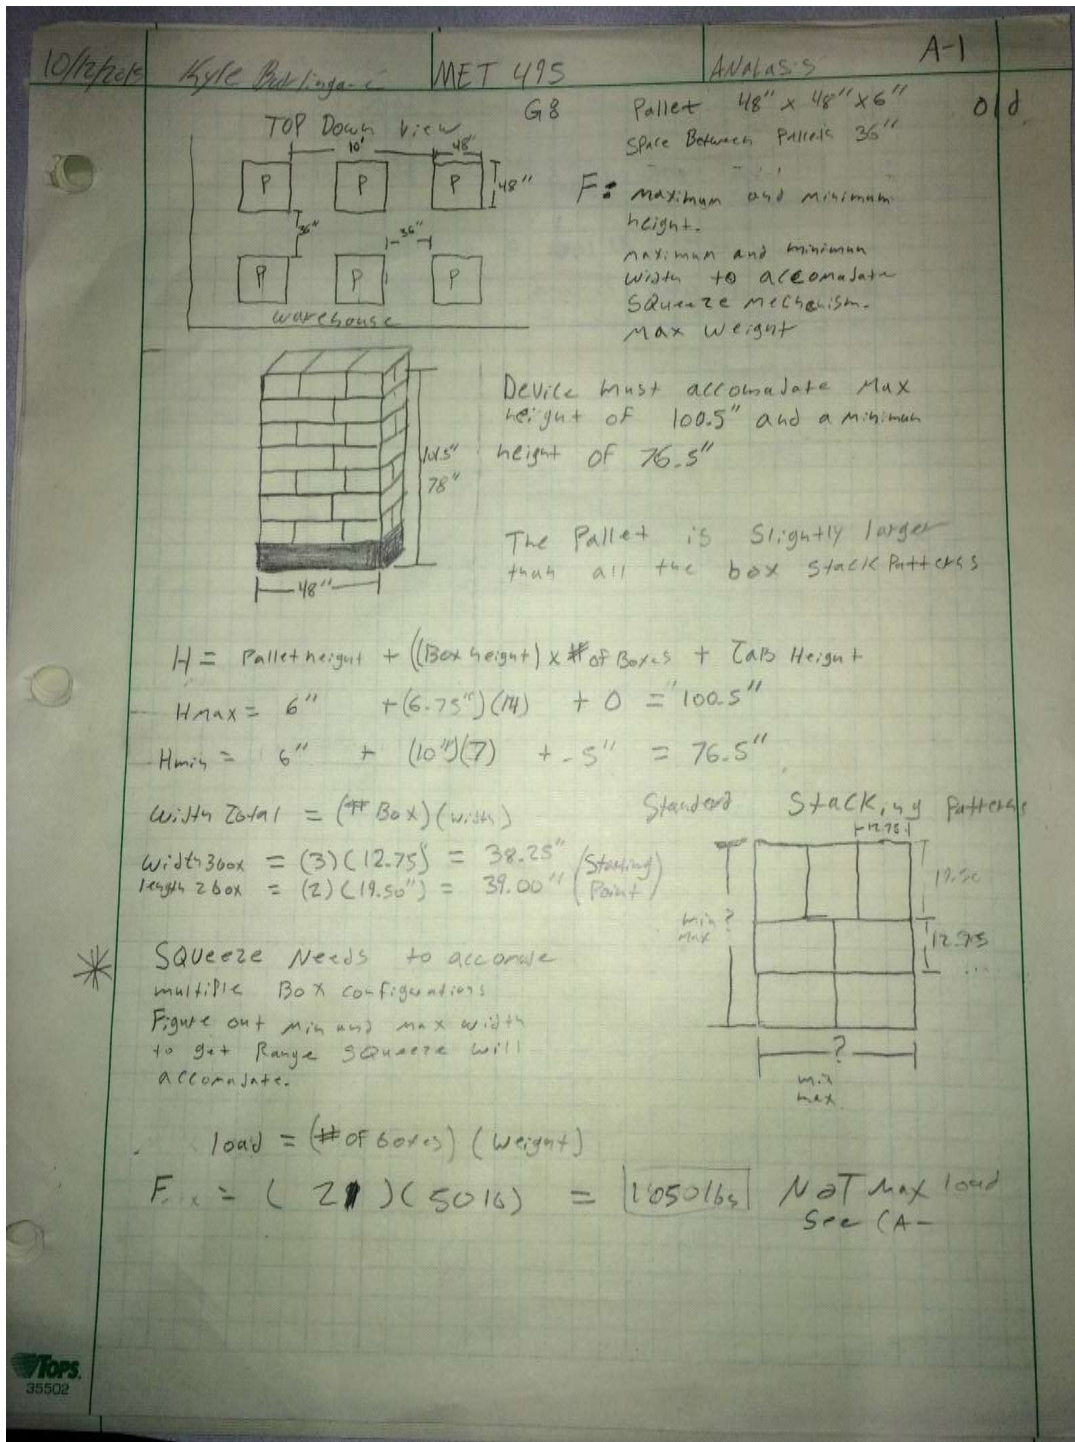 10/12/2015 Kyle MET 495 ANALASIS A-1
G8 Pallet 48" x 48" x 6" Old
Space Between Pallets 36"
TOP Down View
10' 48"
P P P 48"
36" 36"
P P P
warehouse
F: maximum and minimum
height.
maximum and minimum
width to accomadate
squeeze mechanism.
Max weight
Device must accomadate Max
height of 100.5" and a minimum
height of 76.5"
78"
48"
The Pallet is slightly larger
than all the box stack Patterns
H = Pallet height + ((Box height) x # of Boxes + TAB Height
Hmax = 6" + (6.75")(14) + 0 = 100.5"
Hmin = 6" + (10")(7) + .5" = 76.5"
Width Total = (# Box)(width)
Width 3box = (3)(12.75) = 38.25" (Starting
length 2box = (2)(19.50") = 39.00" Point)
Standard Stacking Patterns
12.75
19.50
min ?
max
12.75
?
min
max
* SQueeze Needs to
multiple Box configurations
Figure out min and max width
to get Range squeeze will
accomadate.
load = (# of boxes) (weight)
F = ( 21 )( 50 lb) = 1050 lbs NOT Max load
See (A-
TOPS
35502